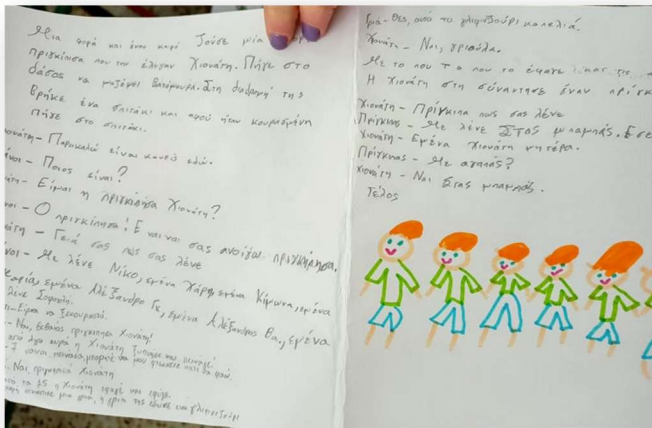 Μια φορά και έναν καιρό ζούσε μία
πριγκίπισα που την έλεγαν Χιονάτη. Πήγε στο
δάσος να μαζέψει βατόμουρα. Στη διαδρομή της
βρήκε ένα σπιτάκι και αφού ήταν κουρασμένη
πήγε στο σπιτάκι.
Παρακαλώ είναι κανείς εδώ.
Ποιος είναι?
Είμαι η πριγκίπισα Χιονάτη?
Ο πριγκίπησα! Ε να σας ανοίξω πριγκίπησα.
Γειά σας πώς σας λένε
Με λένε Νίκο, εμένα Χάρη, εμένα Κίμωνα, εμένα
εμένα Αλέξανδρο Γε, εμένα Αλέξανδρος Βα, εμένα
λένε Σοφούλη.
να ξεκουραστώ.
Ναι, βεβαίως πριγκίπησα Χιονάτη!
από λίγο η Χιονάτη ξύπνησε και
7 νάνοι, πεινάω, μπορείτε να μου φτιάξετε κάτι να φάω.
Ναι, πριγκίπισα Χιονάτη
η Χιονάτη έφαγε και έφυγε.
μια γριά, η γριά της έδωσε ένα γλιφιτζούρι
Γριά - Θες, αυτό το γλιφιτζούρι κοπελιά.
Χιονάτη - Ναι, γριούλα.
Με το που το έφαγε
Η Χιονάτη στη συνάντησε έναν πρίγκ
Χιονάτη - Πρίγκιπα πώς σας λένε
Πρίγκιπας - Με λένε Στας μπαμπάς. Εσέ
Χιονάτη - Εμένα Χιονάτη μητέρα.
Πρίγκιπας - Με αγαπάς?
Χιονάτη - Ναι Στας μπαμπάς.
Τέλος